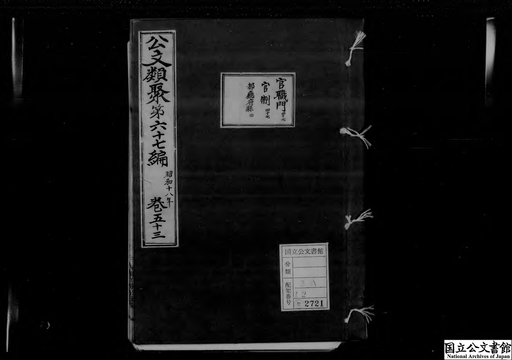 公文類聚第六十七編 昭和十八年 巻五十三
官職門
官制
都庁府県
国立公文書館
分類
配架番号
2721
国立公文書館
National Archives of Japan